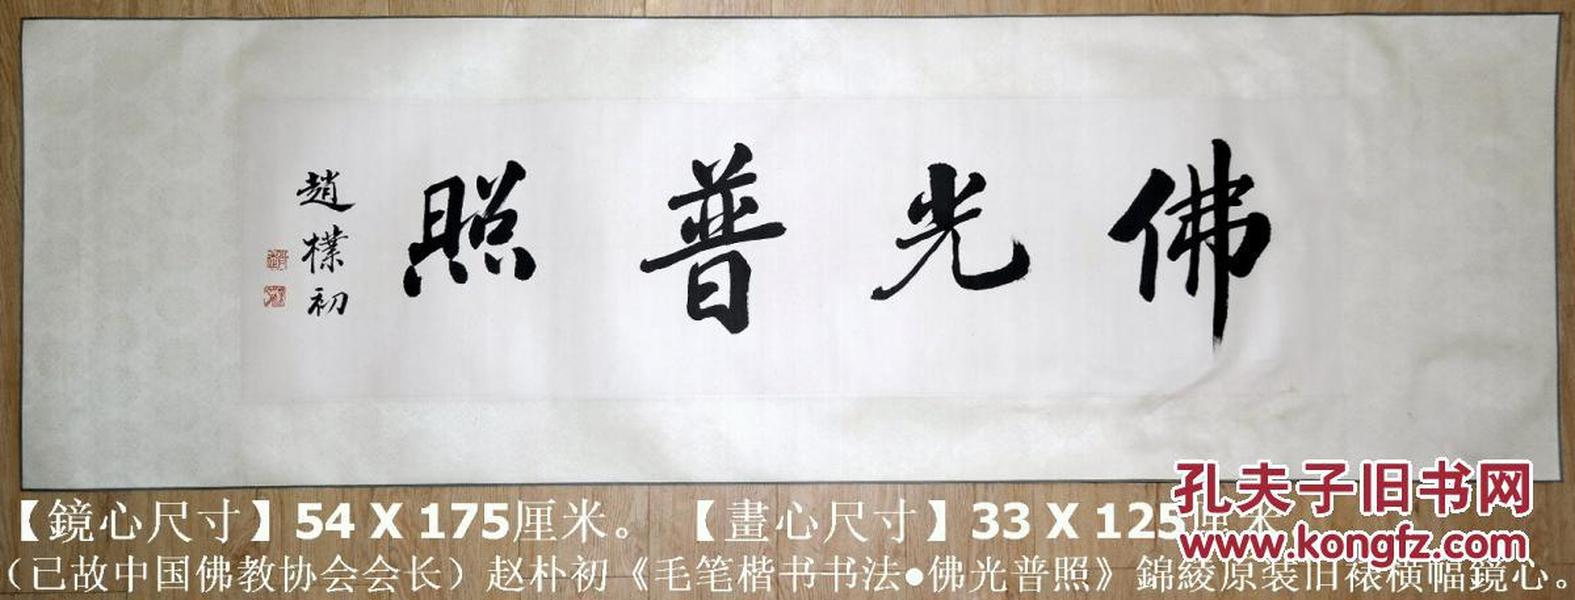 佛光普照
趙樸初
孔夫子旧书网
www.kongfz.com
【鏡心尺寸】54 X 175厘米。 【畫心尺寸】33 X 125厘米
(已故中国佛教协会会长)赵朴初《毛笔楷书书法●佛光普照》錦綾原装旧裱横幅鏡心。